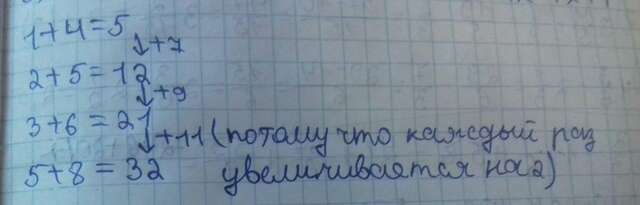 1+4=5
↓+7
2+5=12
↓+9
3+6=21
↓+11 (потому что каждый раз
5+8=32 увеличивается на 2)